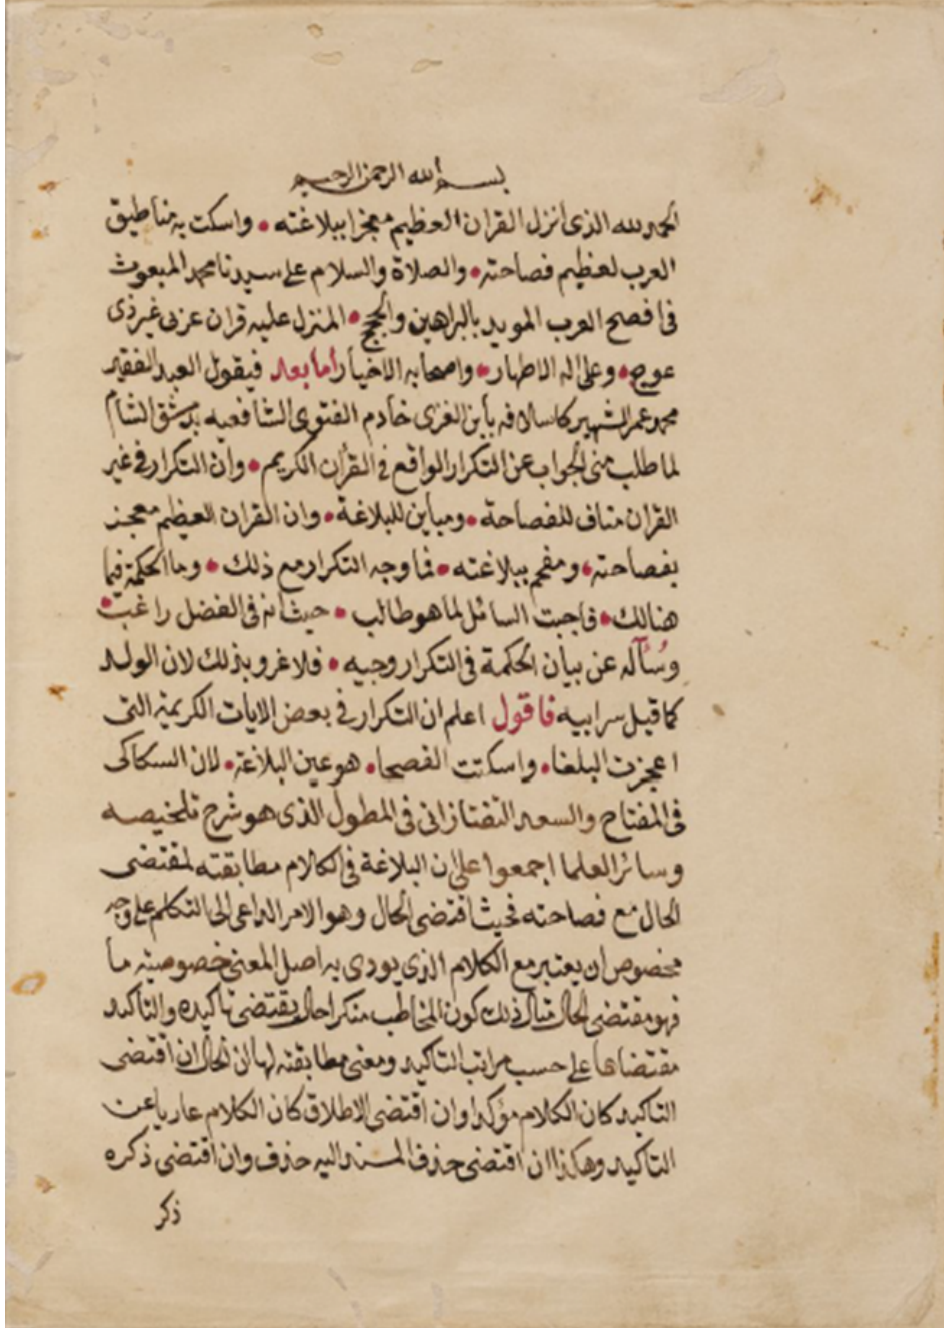 بسم الله الرحمن الرحيم
الحمد لله الذى انزل القران العظيم معجزا ببلاغته • واسكت به مناطيق
العرب لعظيم فصاحته • والصلاة والسلام على سيدنا محمد المبعوث
فى افصح العرب المويد بالبراهين والحجج • المنزل عليه قران عربى غير ذى
عوج • وعلى اله الاطهار • واصحابه الاخيار أما بعد فيقول العبد الفقير
محمد عمر الشهير كاسلافه بابن الغزى خادم الفتوى الشافعيه بدمشق الشام
لما طلب منى الجواب عن التكرار الواقع فى القرأن الكريم • وان التكرار فى غير
القران مناف للفصاحة • ومباين للبلاغة • وان القران العظيم معجز
بفصاحته • ومفحم ببلاغته • فما وجه التكرار مع ذلك • وما الحكمة فيما
هنالك • فاجبت السائل لما هو طالب • حيث انه فى الفضل راغب •
وسُأله عن بيان الحكمة فى التكرار وجيه • فلا غرو بذلك لان الولد
كما قيل سر ابيه فاقول اعلم ان التكرار فى بعض الايات الكريمة التى
اعجزت البلغا • واسكتت الفصحا • هو عين البلاغة • لان السكاكى
فى المفتاح والسعد التفتازانى فى المطول الذى هو شرح تلخيصه
وسائر العلما اجمعوا على ان البلاغة فى الكلام مطابقته لمقتضى
الحال مع فصاحته فحيث اقتضى الحال وهو الامر الداعى الى التكلم على وجه
مخصوص ان يعتبر مع الكلام الذى يودى به اصل المعنى خصوصية ما
فهو مقتضى الحال مثال ذلك كون المخاطب منكرا حال يقتضى تاكيده والتاكيد
مقتضاها على حسب مراتب التاكيد ومعنى مطابقته لها ان الحال ان اقتضى
التاكيد كان الكلام مؤكدا وان اقتضى الاطلاق كان الكلام عاريا عن
التاكيد وهكذا ان اقتضى حذف المسند اليه حذف وان اقتضى ذكره
ذكر